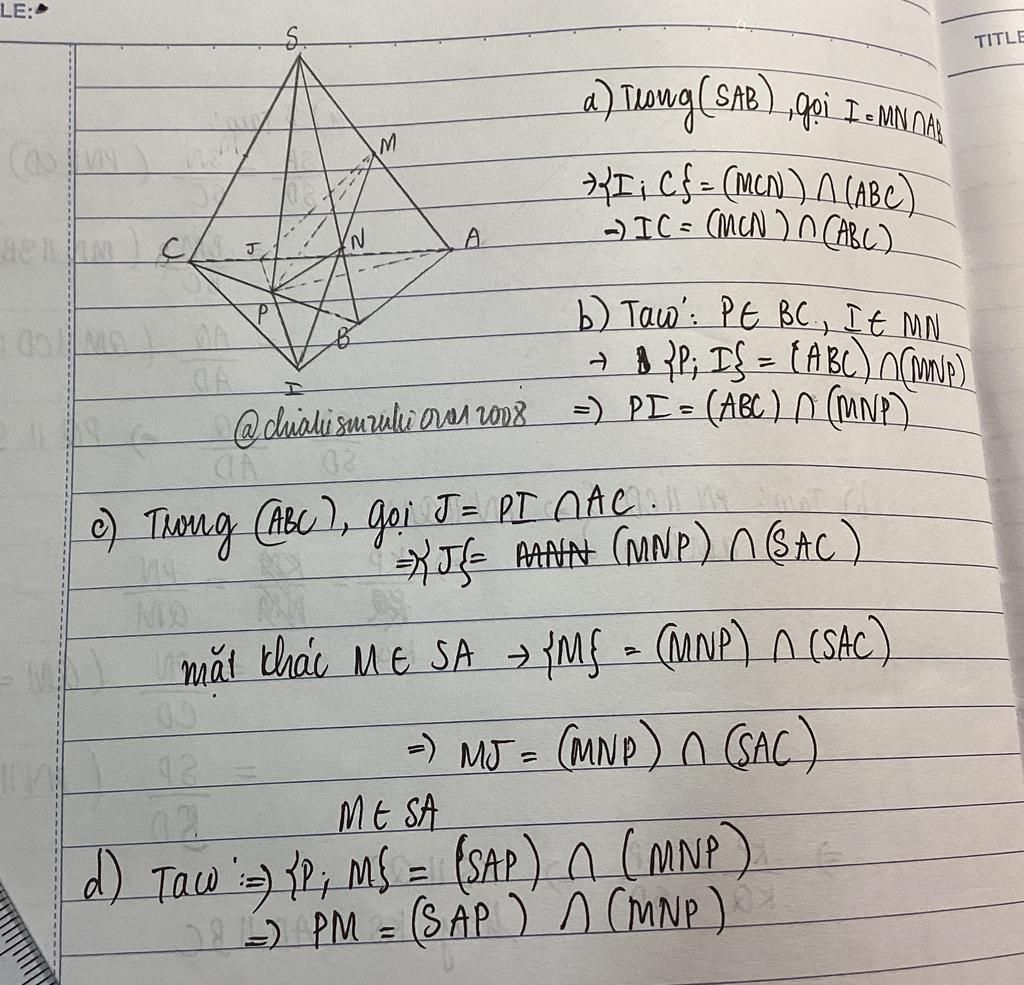 LE:
TITLE
S
M
C
J
N
A
P
B
I
a) Trong (SAB), gọi I = MN ∩ AB
→ {I; C} = (MCN) ∩ (ABC)
→ IC = (MCN) ∩ (ABC)
b) Ta có: P ∈ BC, I ∈ MN
→ {P; I} = (ABC) ∩ (MNP)
=> PI = (ABC) ∩ (MNP)
c) Trong (ABC), gọi J = PI ∩ AC.
=> {J} = (MNP) ∩ (SAC)
mặt khác M ∈ SA → {M} = (MNP) ∩ (SAC)
=> MJ = (MNP) ∩ (SAC)
M ∈ SA
d) Ta có: => {P; M} = (SAP) ∩ (MNP)
=> PM = (SAP) ∩ (MNP)